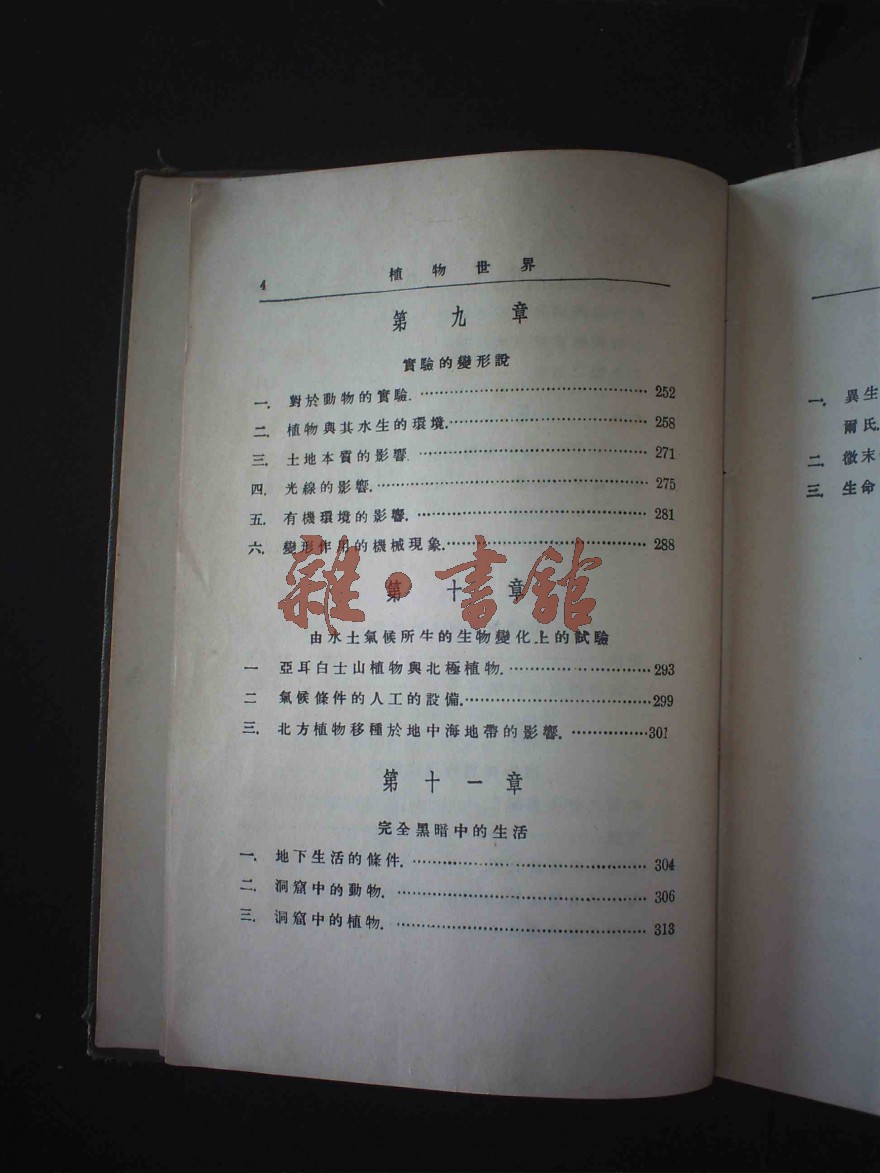 4 植物世界
第九章
實驗的變形說
一. 對於動物的實驗. 252
二. 植物與其水生的環境. 258
三. 土地本質的影響. 271
四. 光線的影響. 275
五. 有機環境的影響. 281
六. 變形作用的機械現象. 288
雜·書館
第十章
由水土氣候所生的生物變化上的試驗
一 亞耳白士山植物與北極植物. 293
二 氣候條件的人工的設備. 299
三. 北方植物移種於地中海地帶的影響. 301
第十一章
完全黑暗中的生活
一. 地下生活的條件. 304
二. 洞窟中的動物. 306
三. 洞窟中的植物. 313
一. 異生
爾氏
二 微末
三. 生命